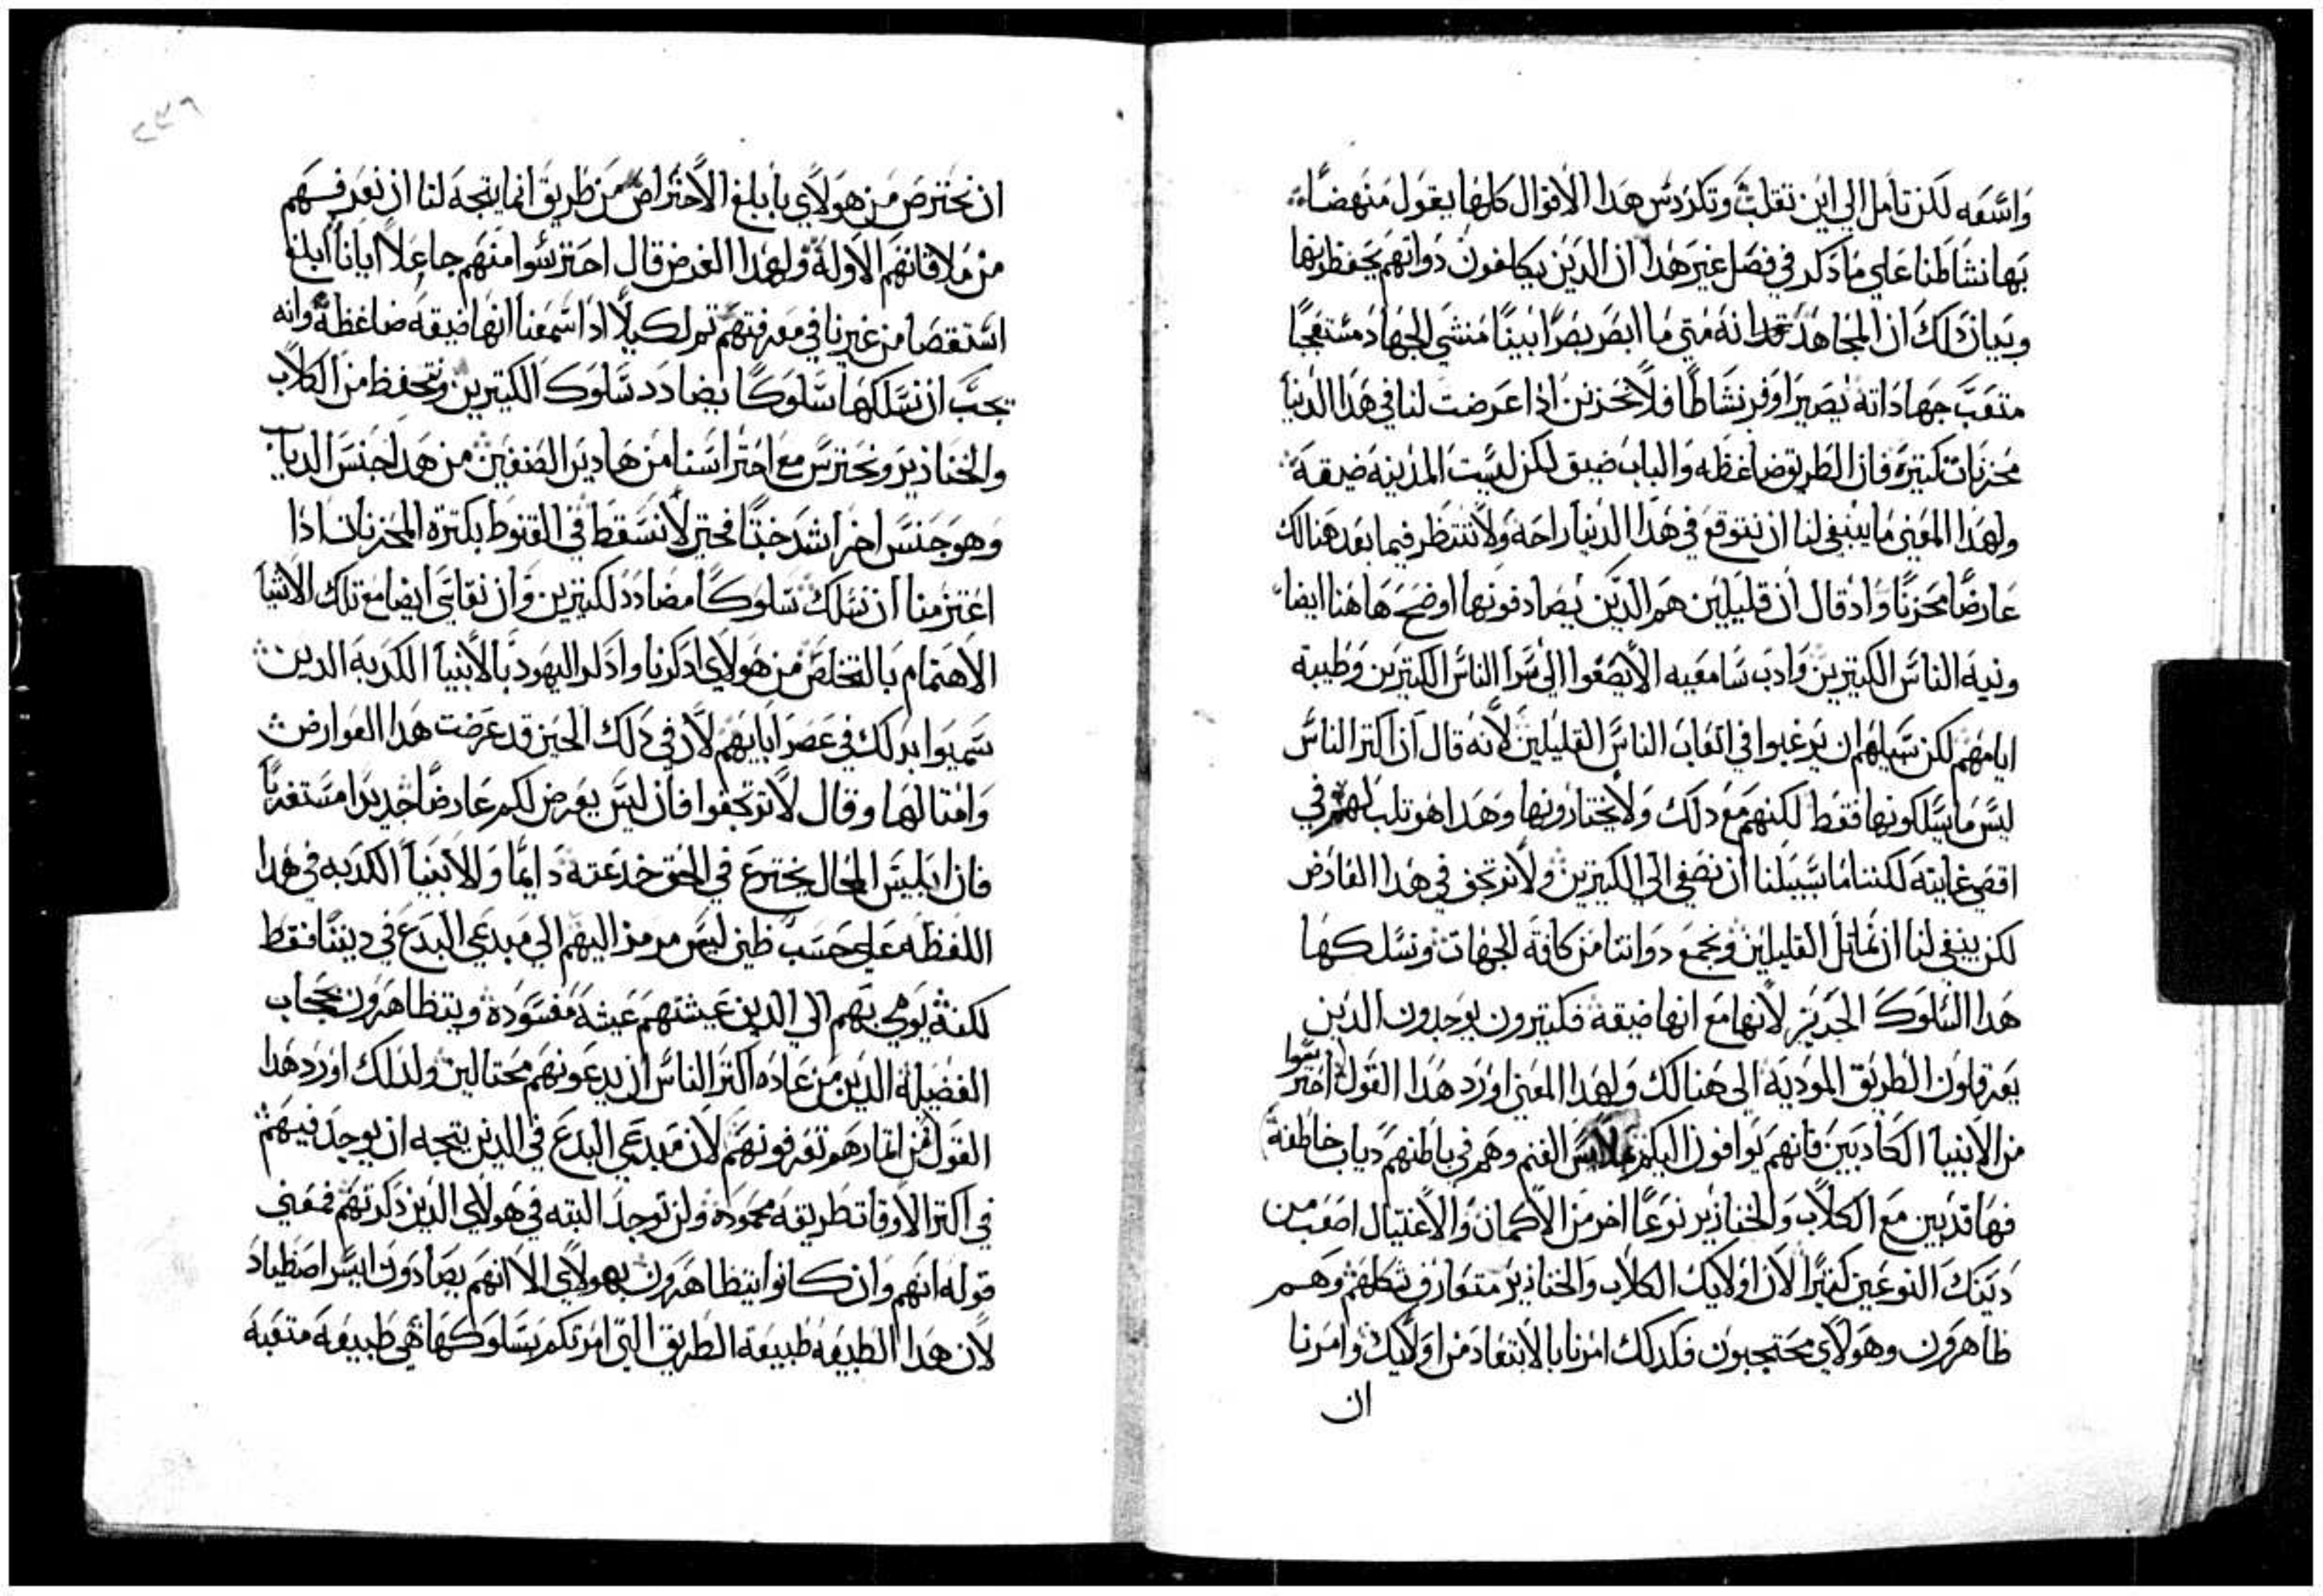 واسعه لكن تامل الي اين تقلب وتكردس هدا الاقوال كلها يقول منهضًا
بها نشاطنا علي ما ذكر في فصل غير هذا ان الدين يكلفون دواتهم يحفظونها
وبيان دلك ان المجاهد انه متي ما ابصر بصرًا بينًا منشي الجهاد مستعجبًا
متعب جهاداته يصير اوفر نشاطًا فلا نحزنن ادا عرضت لنا في هذا الدنيا
محزنات كتيرة فان الطريق ضاغظه والباب ضيق لكن ليست المدينه ضيقة
ولهذا المعني ما ينبغي لنا ان نتوقع في هدا الدنيا راحة ولا ننتظر فيما بعد هنالك
عارضًا محزنًا واد قال ان قليلين هم الدين يصادفونها اوضح هاهنا ايضا
ونية الناس الكتيرين وادب سامعيه الا يصغوا الي سرا الناس الكتيرين وطيبة
ايامهم لكن سبيلهم ان يرغبوا في اتعاب الناس القليلين لانه قال ان اكتر الناس
ليس ما يسلكونها فقط لكنهم مع دلك ولا يختارونها وهدا هو تلب لهم في
اقصي غايته لكننا ما سبيلنا ان نصغي الي الكتيرين ولا نرتجف في هدا العارض
لكن ينبغي لنا ان نماتل القليلين ونجمع دواتنا من كافة الجهات ونسلكها
هدا السلوك الجديز لانها مع انها ضيقة فكتيرون يوجدون الدين
يعرقلون الطريق الموديه الي هنالك ولهدا المعني اورد هدا القول احترسوا
من الانبيا الكادبين فانهم يوافون اليكم بملابس الغنم وهم في باطنهم دياب خاطفة
فها قد بين مع الكلاب والخنازير نوعًا اخر من الاكمان والاغتيال اصعب من
دينك النوعين كتيرًا لان اولايك الكلاب والخنازير متعارف شكلهم وهم
ظاهرون وهولاي محتجبون فكدلك امرنا بالابتعاد من اولايك وامرنا
ان
ان نحترص من هولاي بابلغ الاحتراص من طريق انما يتجه لنا ان نعرفهم
من ملاقاتهم الاولة ولهدا الغرض قال احترسوا منهم جاعلًا ايانا ابلغ
استقصا من غيرنا في معرفتهم تم لكيلا ادا سمعنا انها ضيقه ضاغظة وانه
يجب ان نسلكها سلوكًا يضادد سلوك الكتيرين ونتحفظ من الكلاب
والخنازير ونحترس مع احتراسنا من هادين الصنفين من هدا جنس الدياب
وهو جنس اخر اشد خبتًا فحتي لا نسقط في القنوط بكترة المحزنات ادا
اعتزمنا ان نسلك سلوكًا مضاددًا لكتيرين وان نقاسي ايضا مع تلك الاشيا
الاهتمام بالتخلص من هولاي ادكرنا وادكر اليهود بالانبيا الكدبه الدين
سميوا بدلك في عصر ابايهم لان في دلك الحين قد عرضت هدا العوارض
وامتالها وقال لا ترتجفوا فان ليس يعرض لكم عارضًا جديدًا مستغربًا
فان ابليس المحال يخترع في الحق خدعته دايمًا والانبيا الكدبه في هدا
اللفظه علي حسب ظني ليس مرمز اليهم الي مبدعي البدع في ديننا فقط
لكنه يومي بهم الي الدين عيشتهم عيشة مفسودة ويتظاهرون بحجاب
الفضيلة الدين من عادة اكتر الناس ان يدعونهم محتالين ولدلك اورد هدا
القول من اتمارهم تعرفونهم لان مبدعي البدع في الدين يتجه ان يوجد فيهم
في اكتر الاوقات طريقه محموده ولن توجد البته في هولاي الدين دكرتهم فمعني
قوله انهم وان كانوا يتظاهرون بهولاي الا انهم يصادون ايسر اصطيادًا
لان هدا الطبيعه طبيعة الطريق التي امرتكم بسلوكها هي طبيعة متعبة